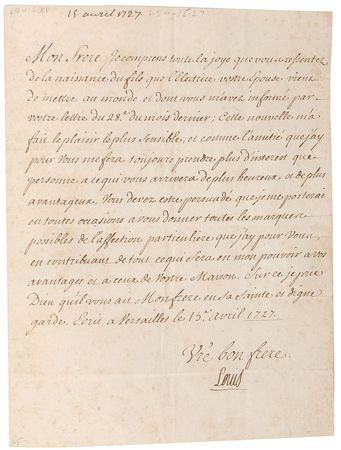 LOUIS XV
15 avril 1727.
Mon Frere Je comprens toute la joye que vous ressentez
de la naissance du fils que l'Electrice votre Epouse vient
de mettre au monde et dont vous m'avez informé par
votre lettre du 28.e du mois dernier; Cette nouvelle m'a
fait le plaisir le plus sensible, et comme l'amitié que j'ay
pour vous me fera toujours prendre plus d'interest que
personne a ce qui vous arrivera de plus heureux et de plus
avantageux, Vous devez estre persuadé que je me porteray
en toutes occasions a vous donner toutes les marques
possibles de l'affection particuliere que j'ay pour Vous
en contribuant de tout ce qui sera en mon pouvoir a vos
avantages et a ceux de Vostre Maison. Sur ce je prie
Dieu qu'il vous ait Mon frere en sa Sainte et digne
garde. Ecrit a Versailles le 15.e avril 1727.
Vre bon frere.
Louis